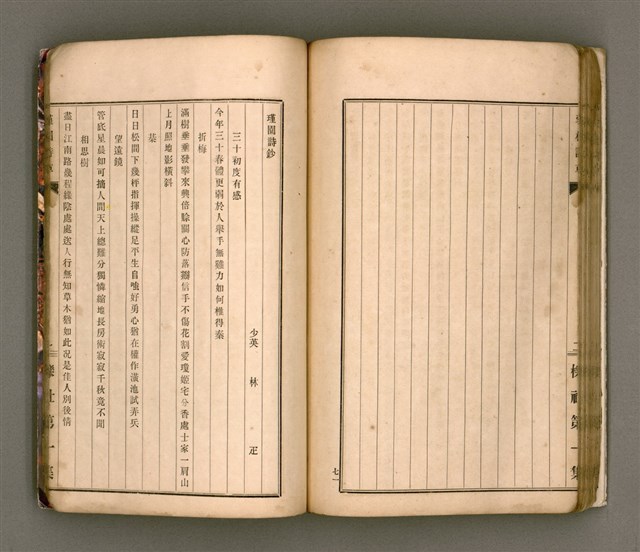 瑾園詩鈔
少英 林 疋
三十初度有感
今年三十春體更弱於人舉手無雞力如何椎得秦
折梅
滿樹垂垂發攀來興倍賒關心防落瓣信手不傷花割愛瓊姬宅分香處士家一肩山
上月照地影橫斜
棊
日日松間下幾枰指揮操縱足平生自嗤好勇心猶在權作潢池試弄兵
望遠鏡
管底星晨如可摘人間天上總難分獨憐縮地長房術寂寂千秋竟不聞
相思樹
盡日江南路幾程綠陰處處送人行無知草木猶如此況是佳人別後情
櫟社第一集
七一